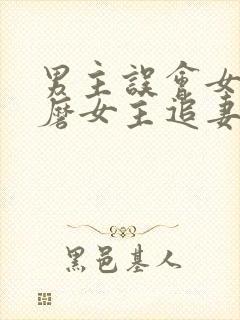 男主誤會女
磨女主追妻
黑邑基人